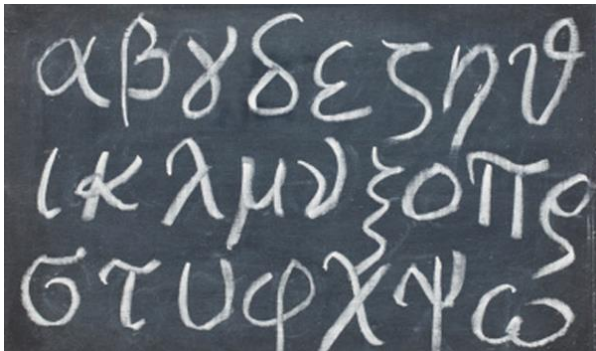 α β γ δ ε ζ η θ
ι κ λ μ ν ξ ο π ρ
σ τ υ φ χ ψ ω